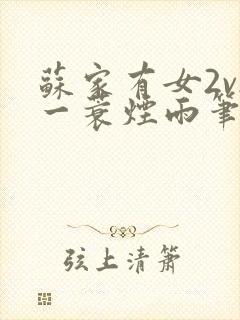 蘇家有女2v
一蓑煙雨筆
弦上清簫